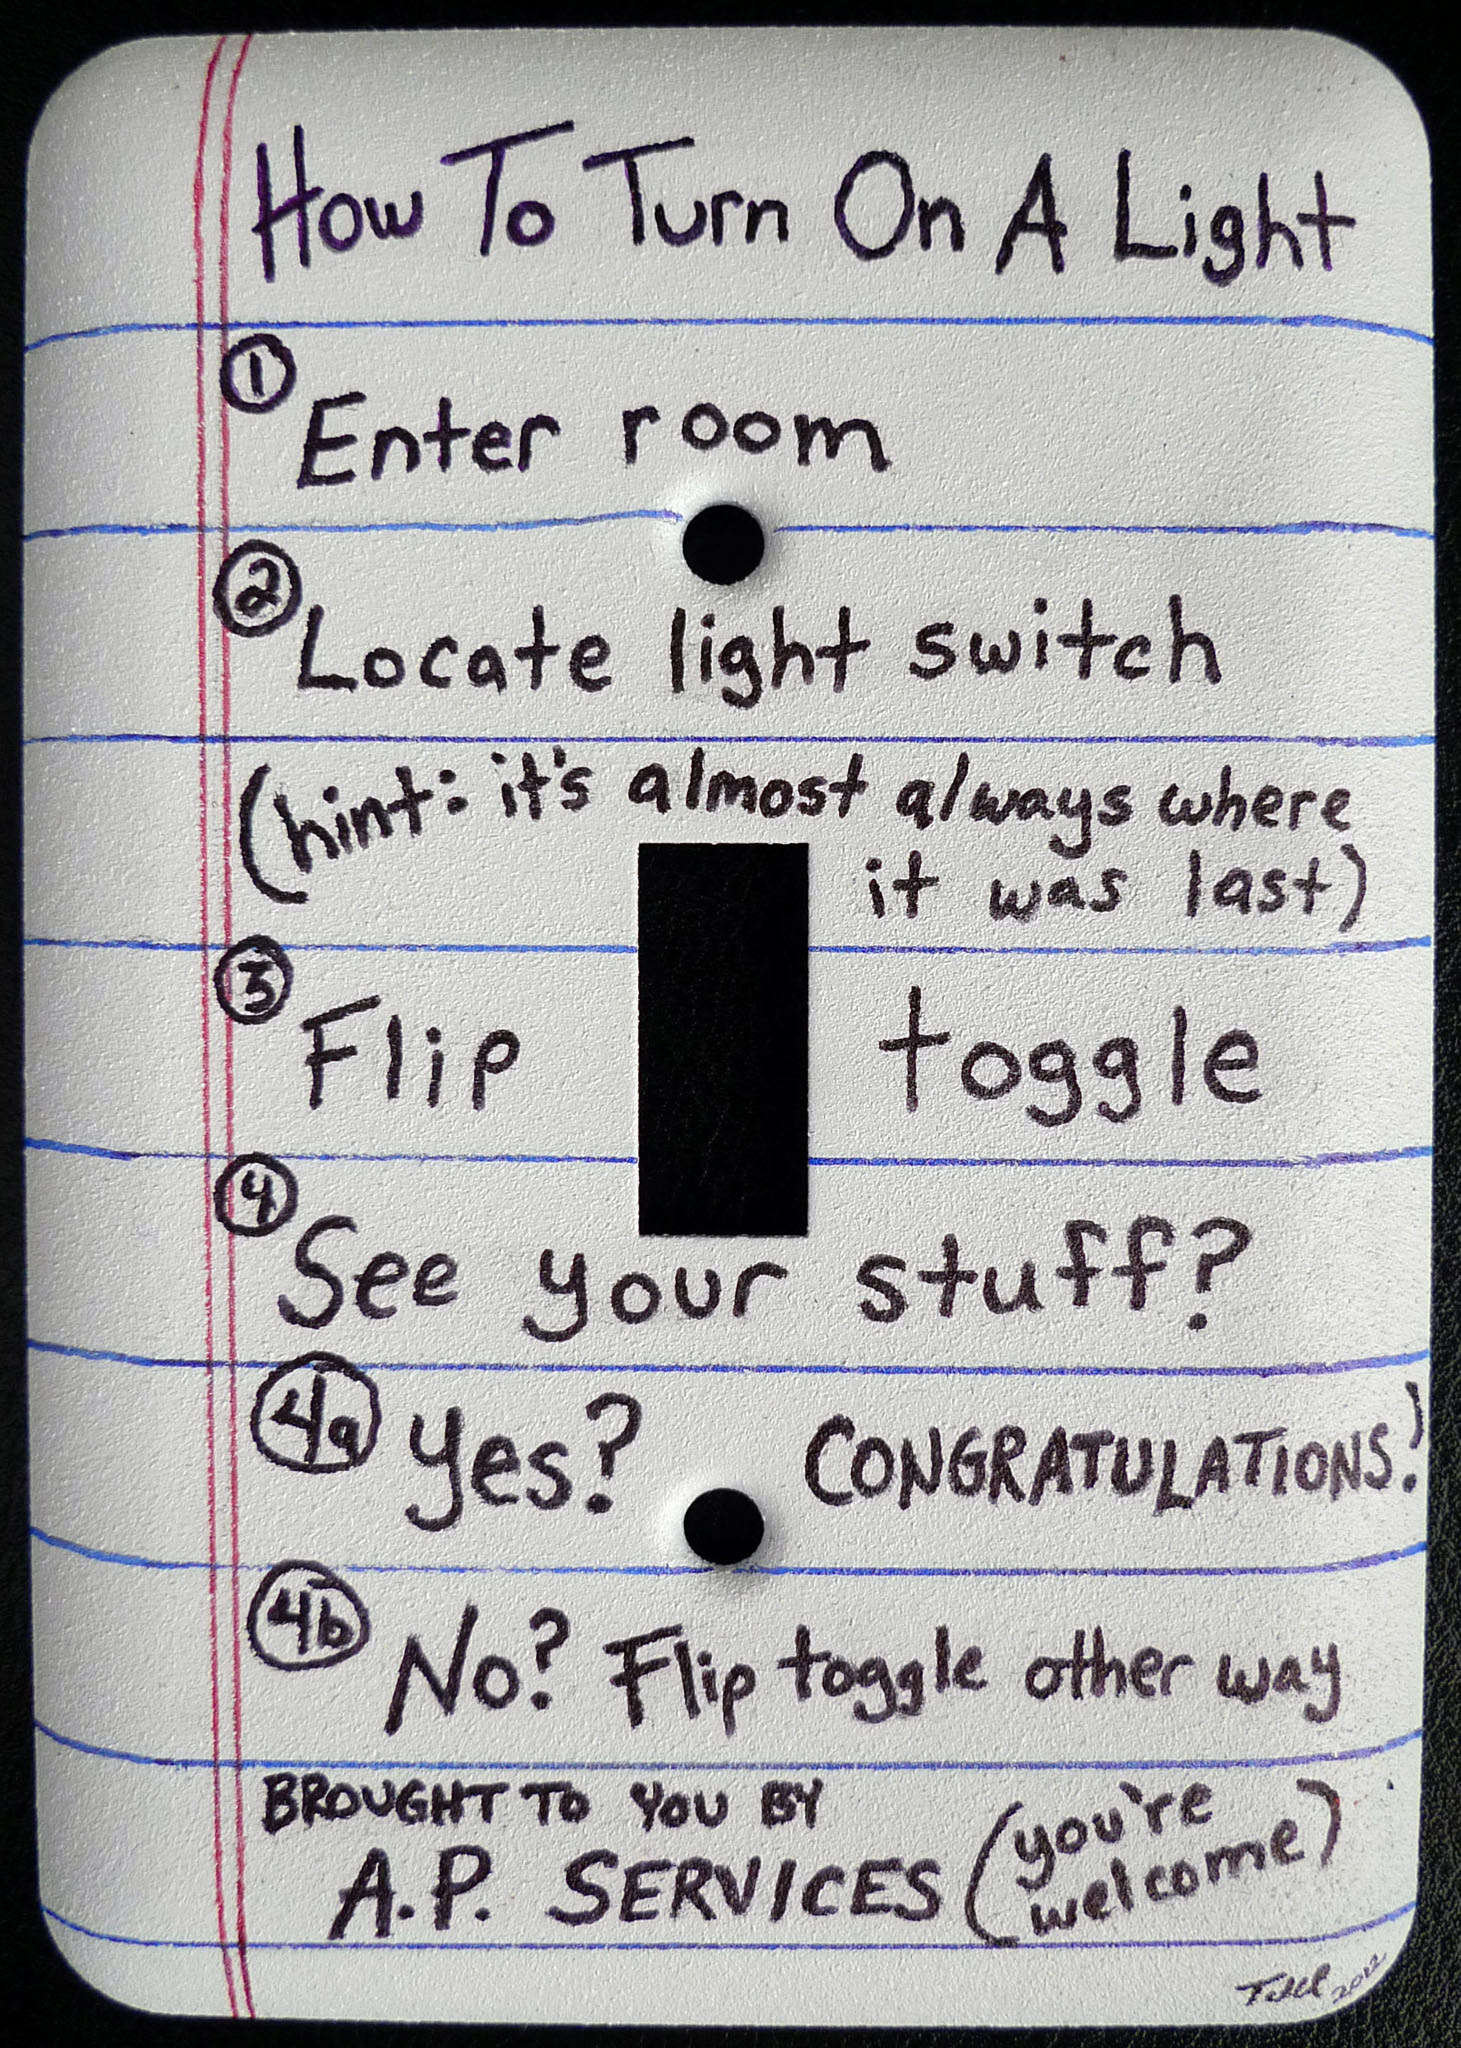 How To Turn On A Light
① Enter room
② Locate light switch
(hint: it's almost always where
it was last)
③ Flip toggle
④ See your stuff?
4a Yes? CONGRATULATIONS!
4b No? Flip toggle other way
BROUGHT TO YOU BY
A.P. SERVICES (you're
welcome)
2012